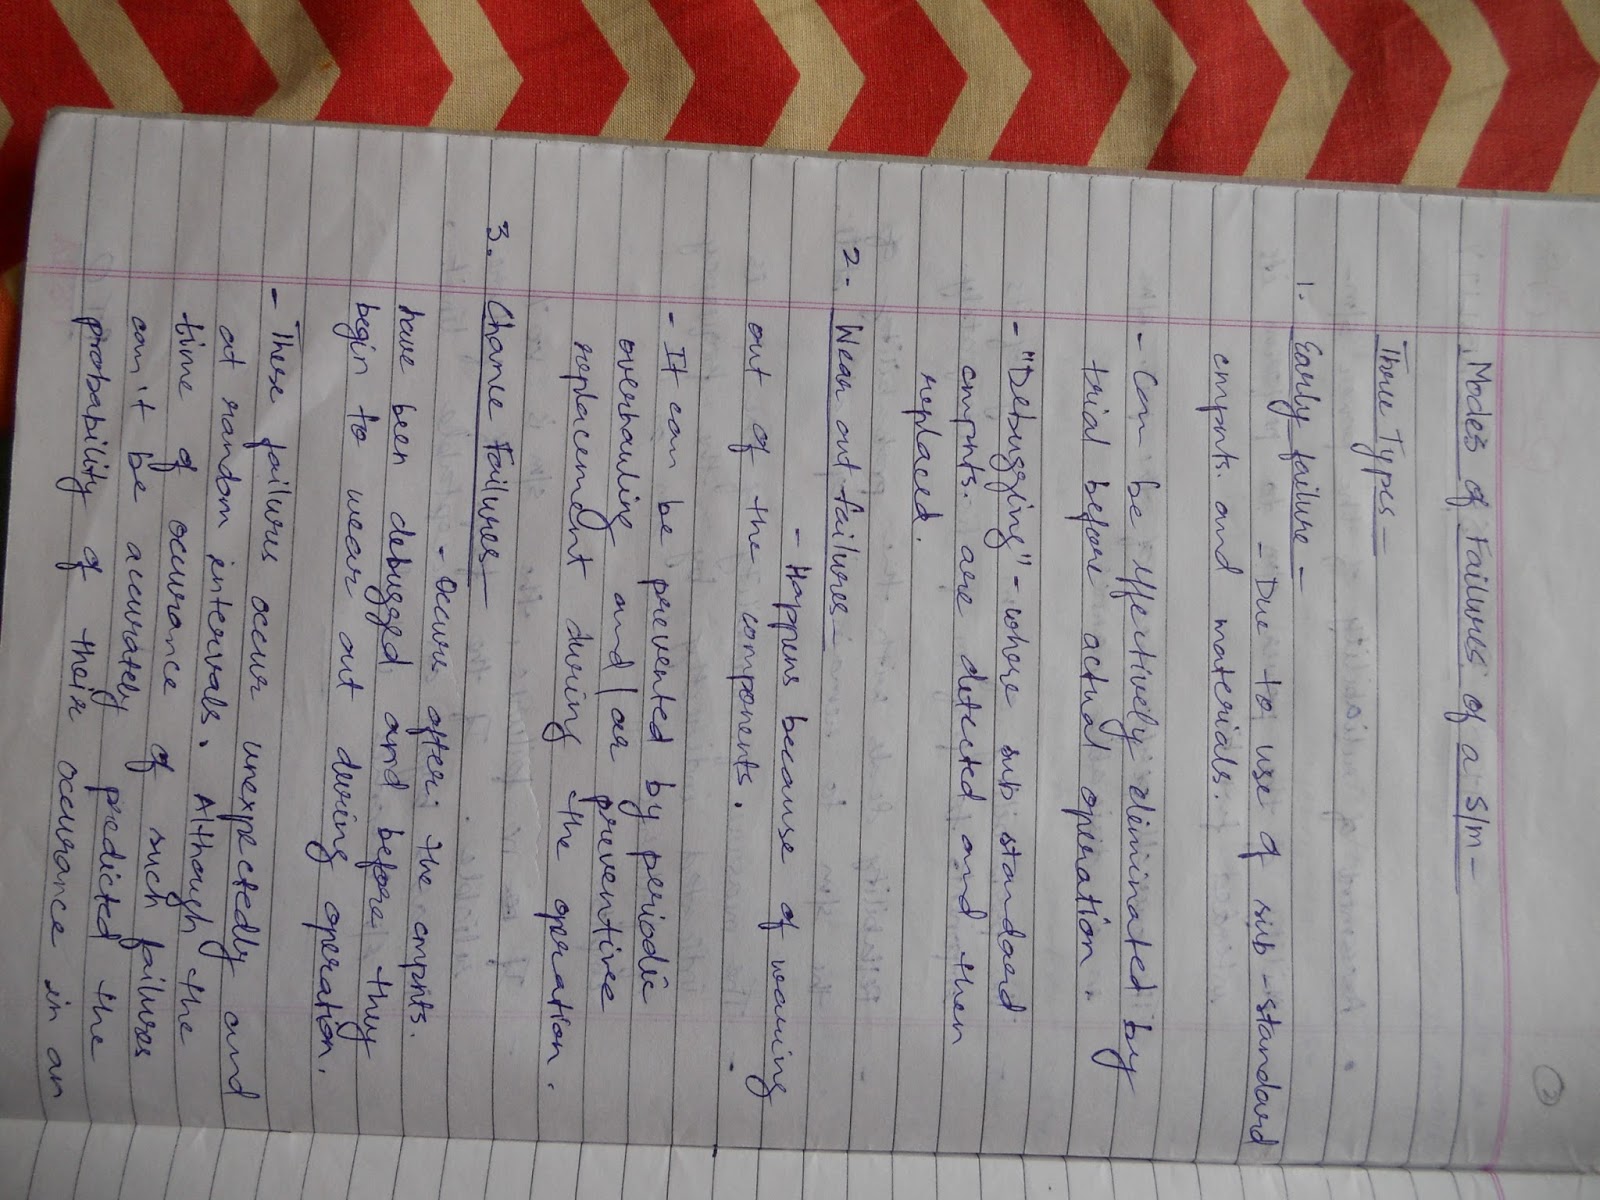 2
Modes of Failures of a s/m -
Three Types -
1. Early failure -
- Due to use of sub-standard
cmpnts. and materials.
- Can be effectively eliminated by
trial before actual operation.
- "Debugging" - where sub standard
cmpnts. are detected and then
replaced.
2. Wear out failures -
- Happens because of wearing
out of the components.
- It can be prevented by periodic
overhauling and/or preventive
replacement during the operation.
3. Chance Failures -
- Occurs after the cmpnts.
have been debugged and before they
begin to wear out during operation.
- These failures occur unexpectedly and
at random intervals. Although the
time of occurance of such failures
can't be accurately predicted the
probability of their occurance in an